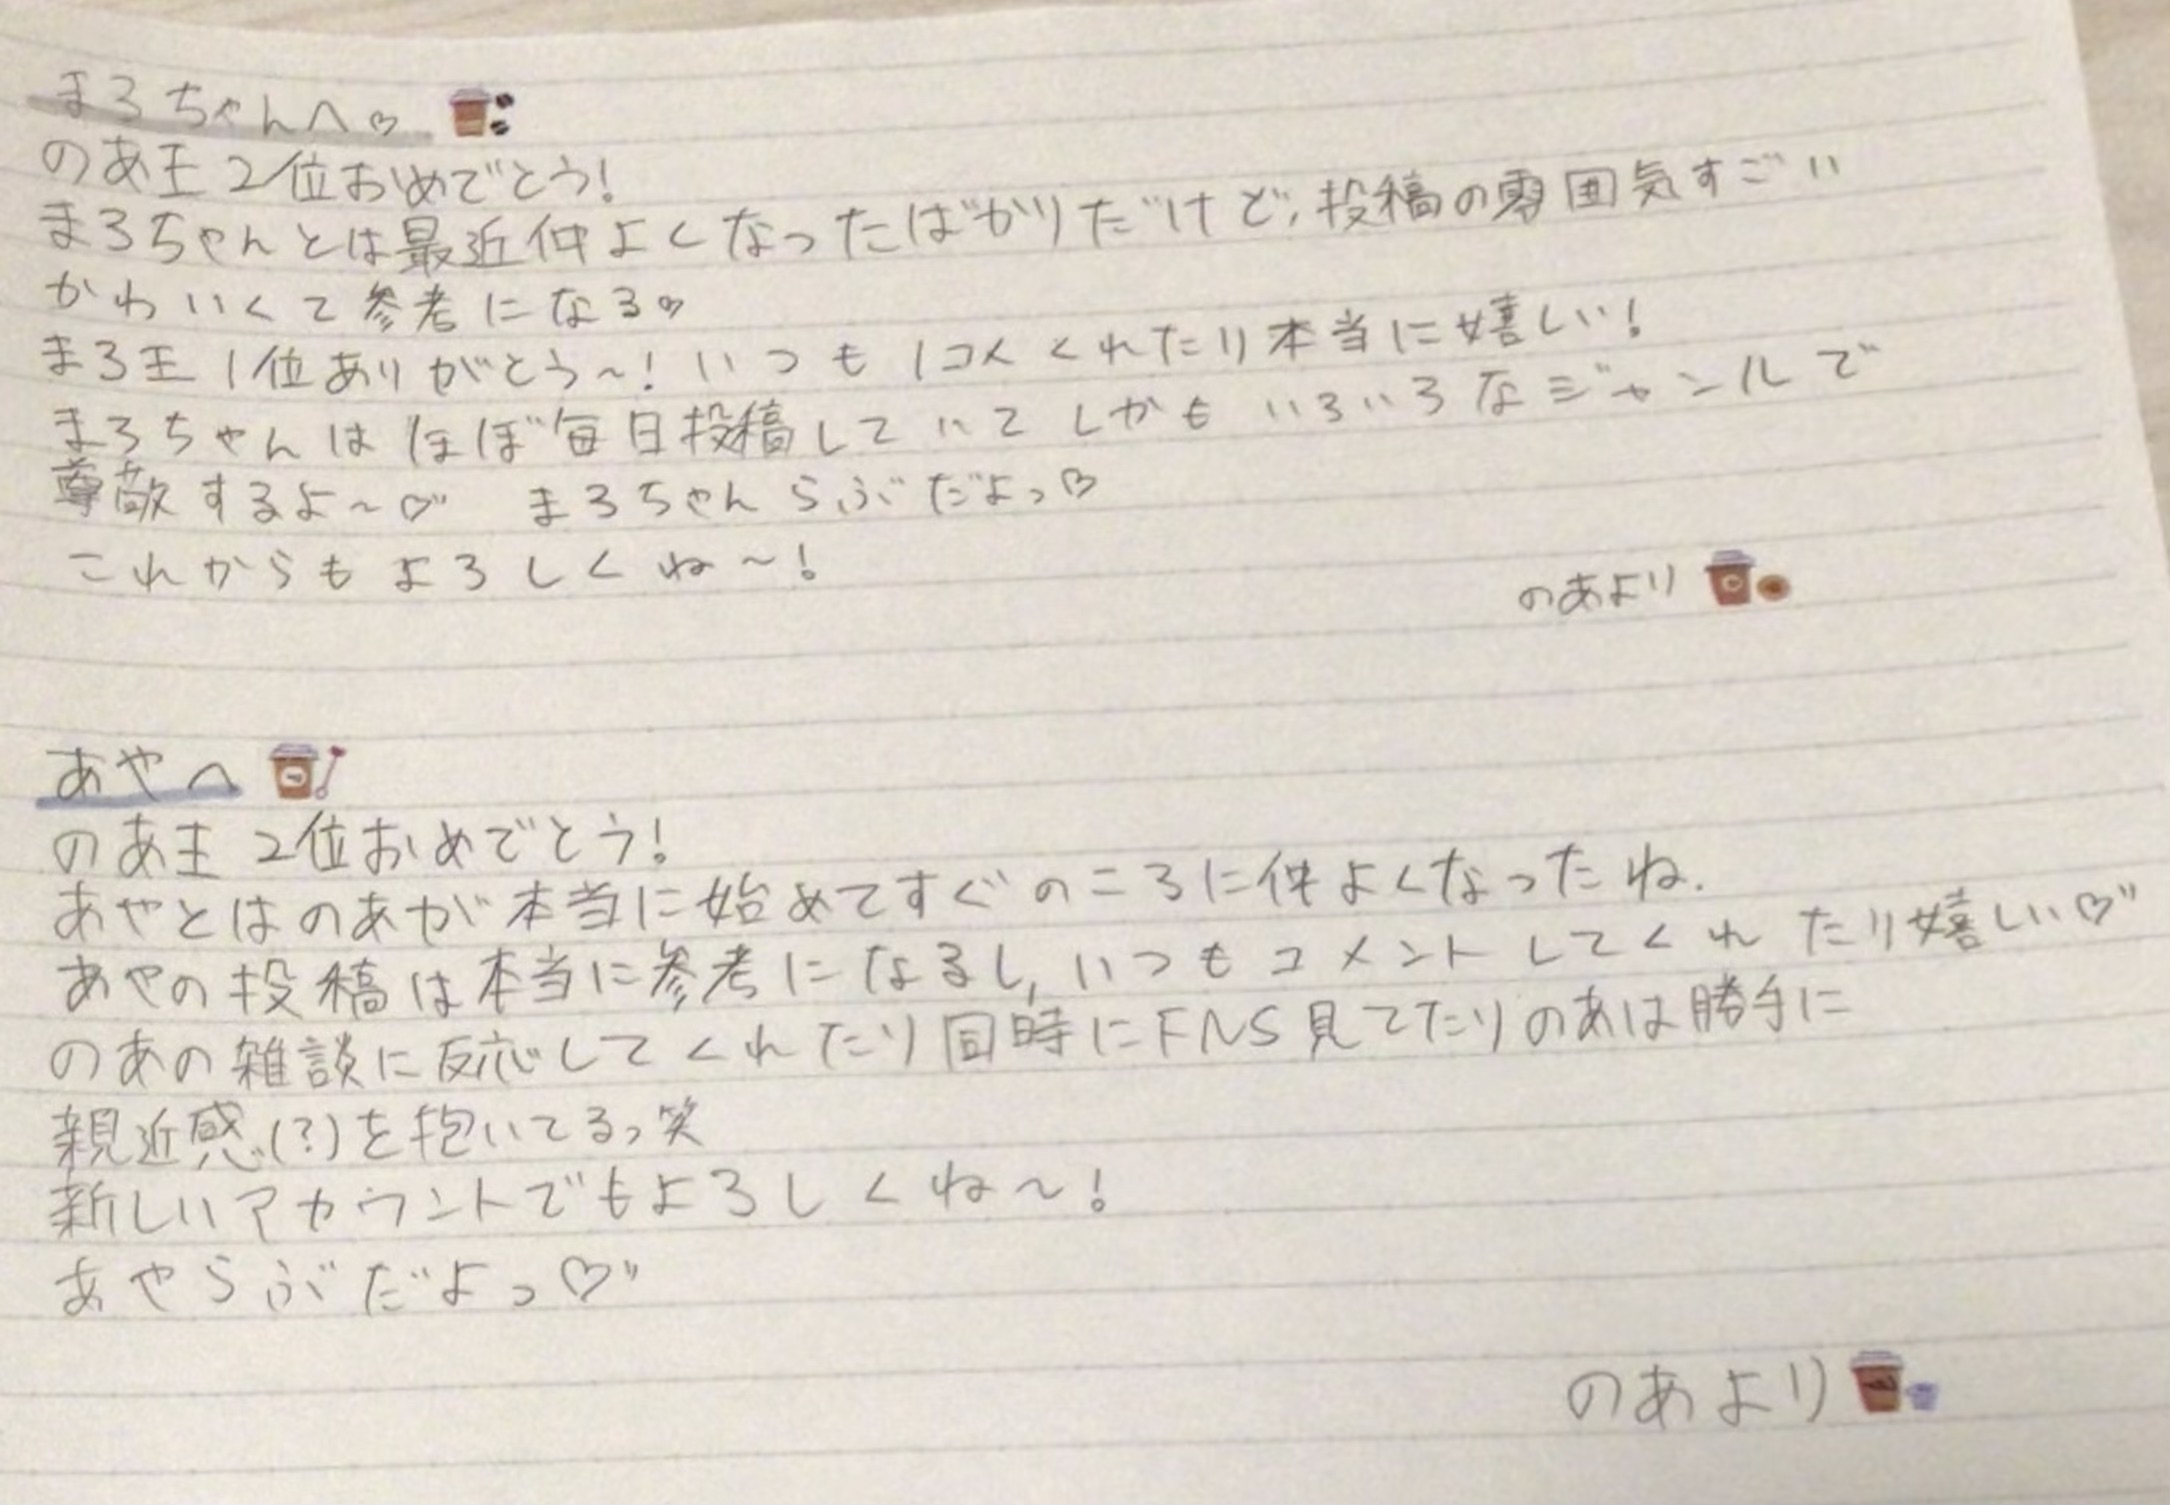 まろちゃんへ♡
のあ王 2位おめでとう!
まろちゃんとは最近仲よくなったばかりだけど、投稿の雰囲気すごい
かわいくて参考になる♡
まろ王 1位ありがとう〜! いつも1コメくれたり本当に嬉しい!
まろちゃんはほぼ毎日投稿していてしかもいろいろなジャンルで
尊敬するよ〜♡ まろちゃんらぶだよっ♡
これからもよろしくね〜!
のあより
あやへ
のあ王 2位おめでとう!
あやとはのあが本当に始めてすぐのころに仲よくなったね.
あやの投稿は本当に参考になるし, いつもコメントしてくれたり嬉しい♡
のあの雑談に反応してくれたり同時にFNS見てたりのあは勝手に
親近感(?)を抱いてるっ笑
新しいアカウントでもよろしくね〜!
あやらぶだよっ♡
のあより